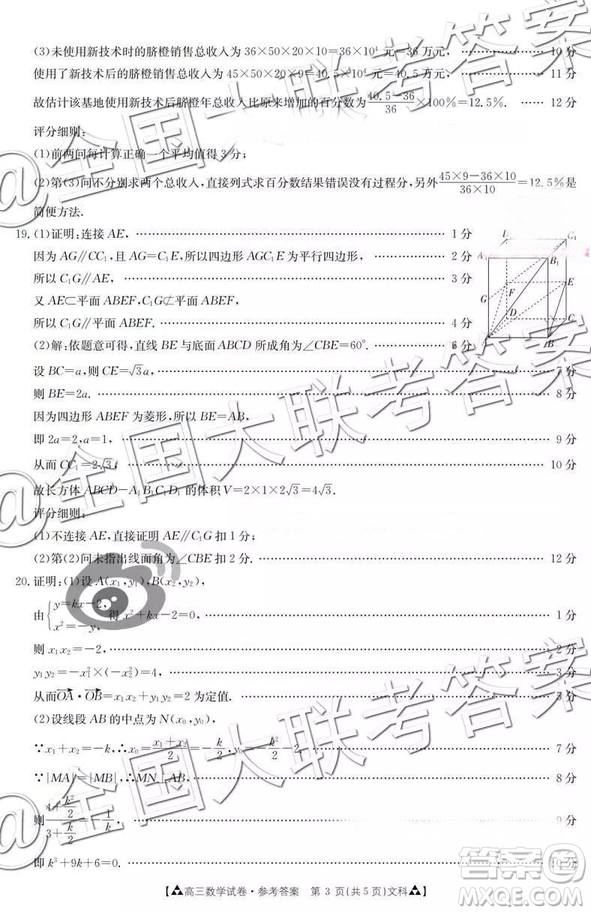 (3)未使用新技术时的脐橙销售总收入为36×50×20×10=36×10⁴元=36万元, …… 10分
使用了新技术后的脐橙销售总收入为45×50×20×9=40.5×10⁴元=40.5万元, …… 11分
故估计该基地使用新技术后脐橙年总收入比原来增加的百分数为(40.5-36)/36×100%=12.5%. …… 12分
评分细则:
(1)前两问每计算正确一个平均值得3分;
(2)第(3)问不分别求两个总收入,直接列式求百分数结果错误没有过程分,另外(45×9-36×10)/(36×10)=12.5%是
简便方法.
19.(1)证明:连接AE, …… 1分
因为AG∥CC₁,且AG=C₁E,所以四边形AGC₁E为平行四边形, …… 2分
所以C₁G∥AE. …… 3分
又AE⊂平面ABEF,C₁G⊄平面ABEF,
所以C₁G∥平面ABEF. …… 4分
(2)解:依题意可得,直线BE与底面ABCD所成角为∠CBE=60°. …… 6分
设BC=a,则CE=√3a, …… 7分
则BE=2a. …… 8分
因为四边形ABEF为菱形,所以BE=AB,
即2a=2,a=1. …… 9分
从而CC₁=2√3, …… 10分
故长方体ABCD-A₁B₁C₁D₁的体积V=2×1×2√3=4√3.
评分细则:
(1)不连接AE,直接证明AE∥C₁G扣1分;
(2)第(2)问未指出线面角为∠CBE扣2分. …… 12分
20.证明:(1)设A(x₁,y₁),B(x₂,y₂),
由{y=kx-2, x²=-y, 得x²+kx-2=0, …… 1分
则x₁x₂=-2, …… 2分
y₁y₂=-x₁²×(-x₂²)=4, …… 4分
从而OA·OB=x₁x₂+y₁y₂=2为定值. …… 5分
(2)设线段AB的中点为N(x₀,y₀),
∵x₁+x₂=-k,∴x₀=(x₁+x₂)/2=-k/2, …… 7分
∵|MA|=|MB|,∴MN⊥AB, …… 8分
9分
即k³+9k+6=0. …… 10分
高三数学试卷·参考答案 第3页(共5页)文科
A₁
B₁
C₁
G
F
E
D
C
A
B
@全国大联考答案
@全国大联考答案